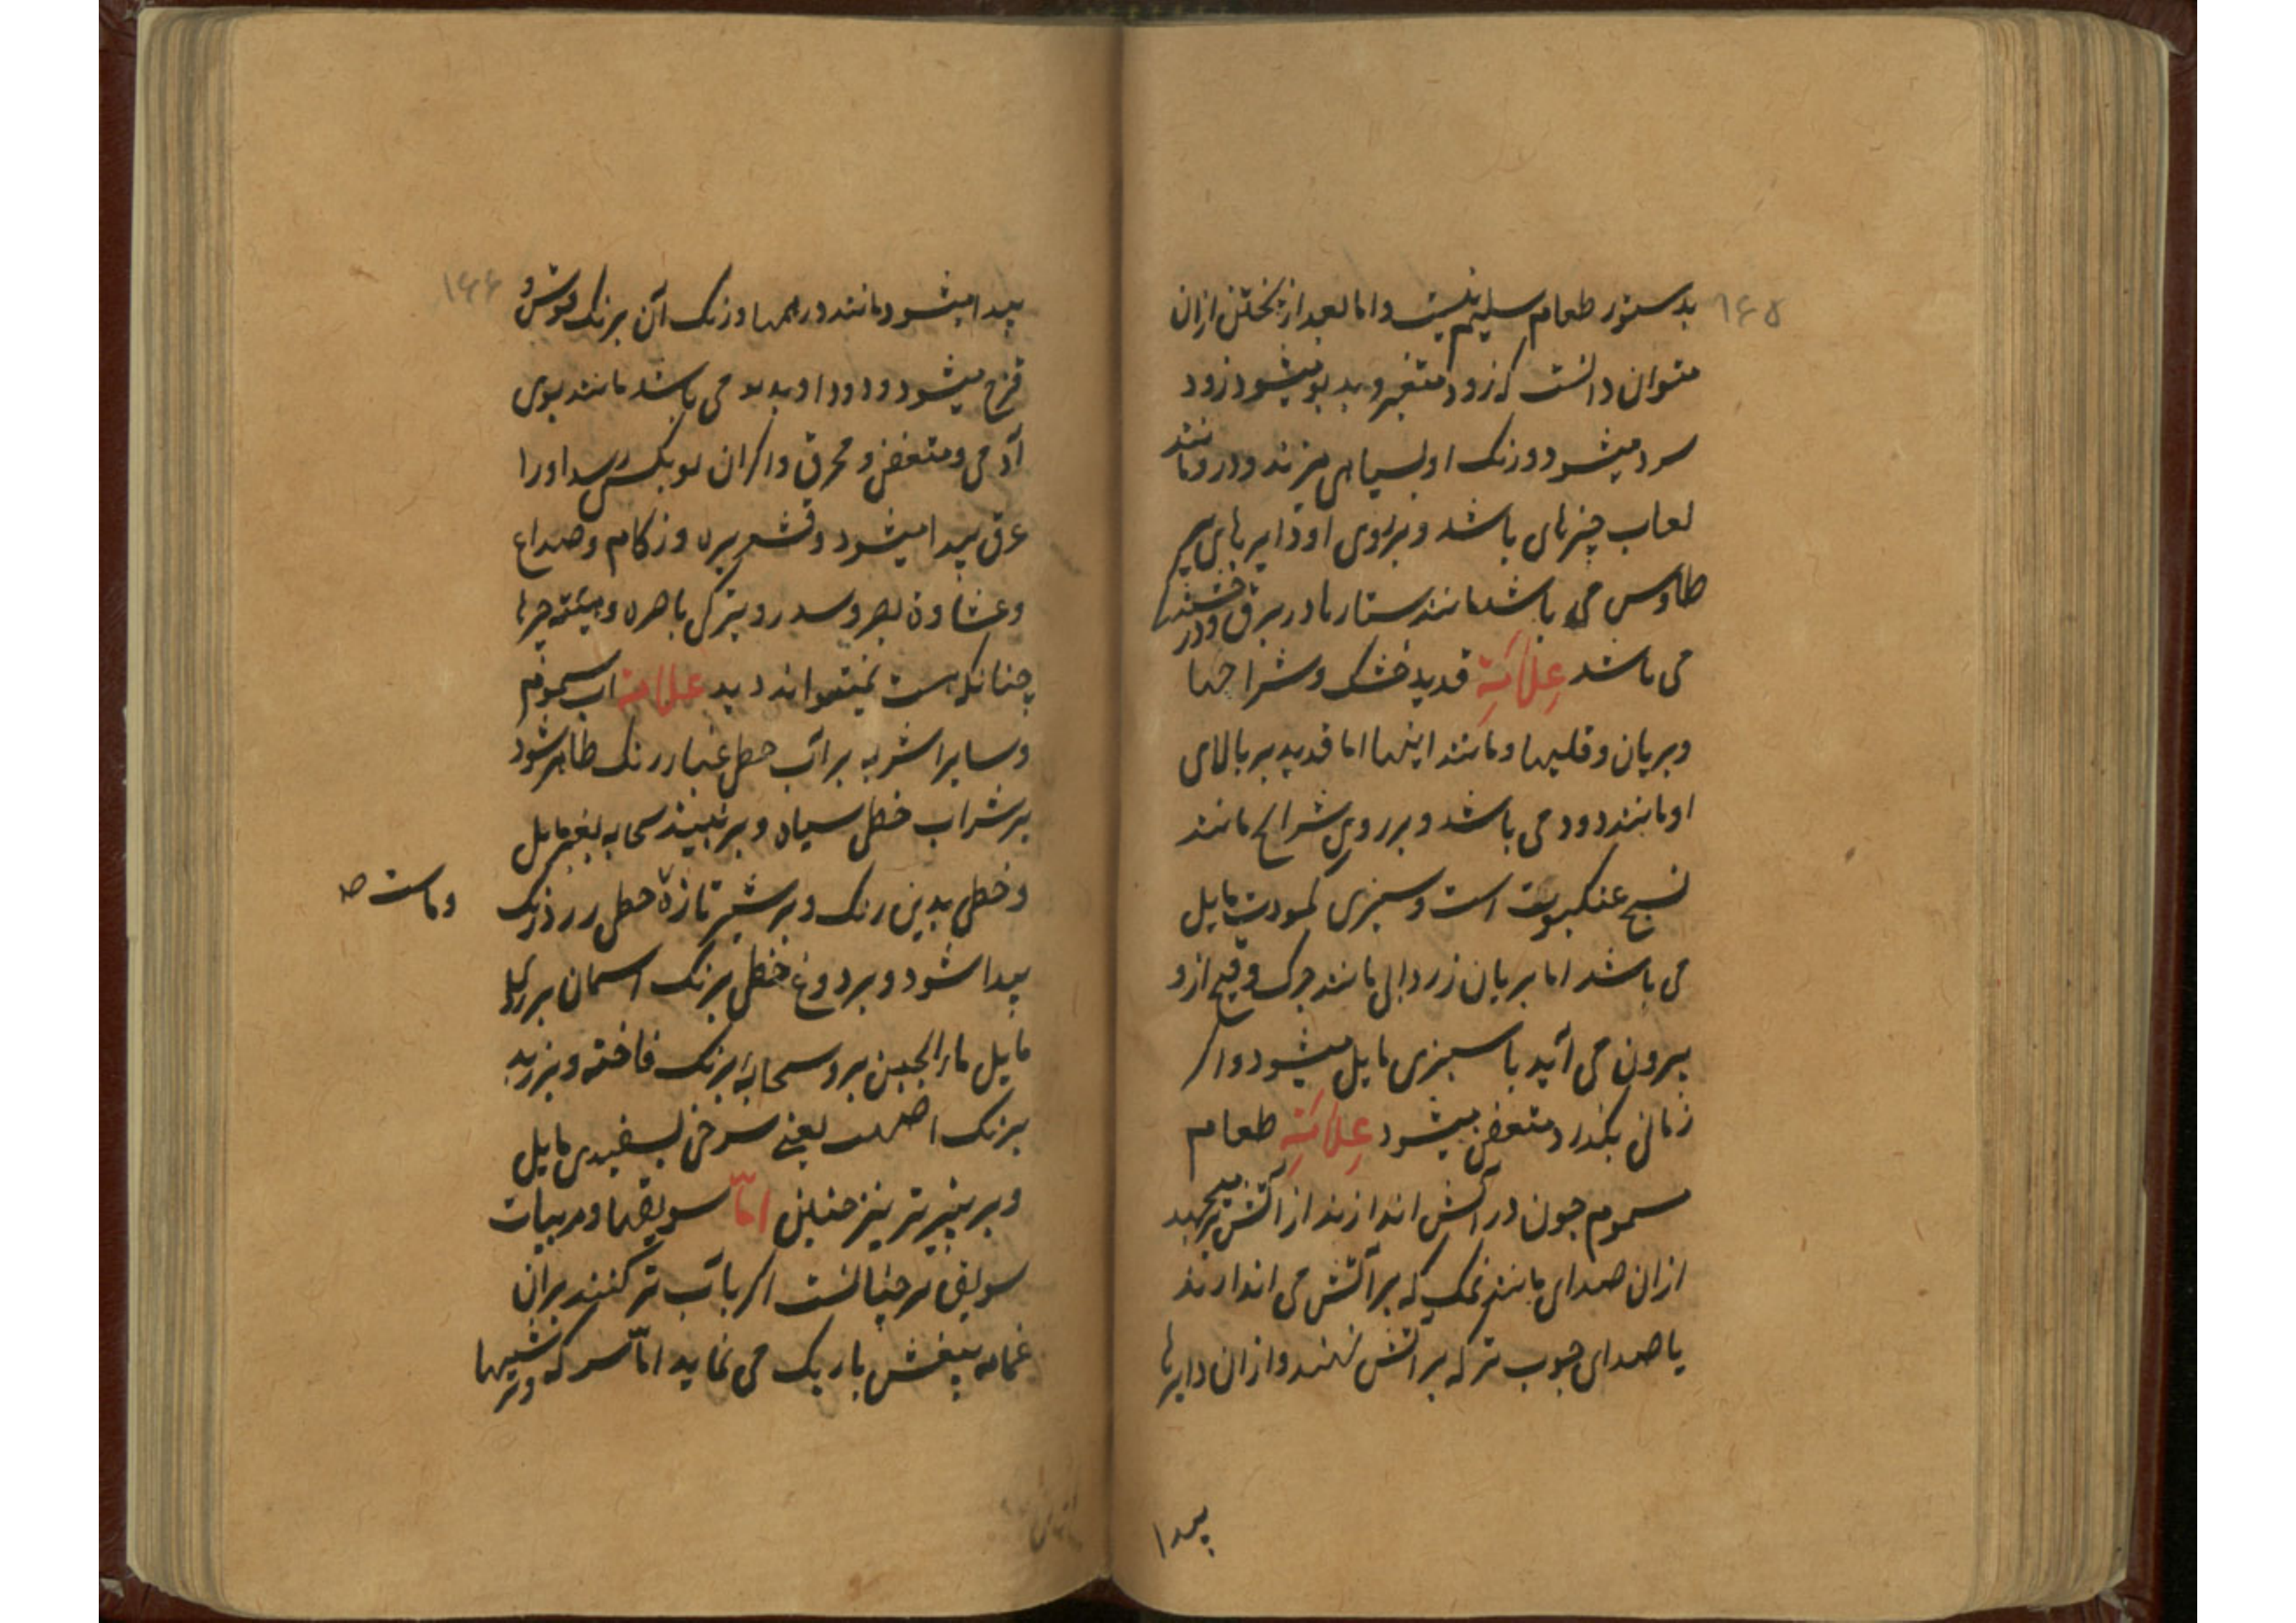 ۱۶۵
بدستور طعام سلیم نیست و اما بعد از پختن ازان
متوان دانست که زود متغیر و بد بو میشود زود
سرد میشود و رنک او بسیاهی میزند و درو مانند
لعاب چیزهای باشد و بر روی او دایرهای پر
طاوس می باشد مانند ستارها در برق و درخشند
می باشد علامة قدید خشک و شراحها
و بریان و قلیها و مانند اینها اما قدید بر بالای
او مانند دود می باشد و بر روی شرایح مانند
نسج عنکبوت است و سبزی بکمودت مایل
می باشد اما بریان زردابی مانند چرک و قیح ازو
بیرون می آید با سبزی مایل میشود و اکر
زمانی بگذرد متعفن میشود علامة طعام
مسموم چون در آتش اندازند از آتش بر میجهد
ازان صدای مانند نمک که بر آتش می اندازند
یا صدای چوب تر که بر آتش نهند و ازان دایرها
پیدا
۱۶۶
پیدا میشود مانند درهمها و رنک آن برنک قوس و
قزح میشود و دود او بد بو می باشد مانند بوی
آدمی و متعفن و محرق و اکر ان بو بکسی رسد او را
عرق پیدا میشود و قشعریره و زکام و صداع
و غشاوة بصر و سدر و بترکی باصره و چیزها
چنانکه هست نمیتواند دید علامة اب مسموم
و سایر اشربه بر آب خطی غبار رنک ظاهر شود
بر شراب خطی سیاه و بر نبیذ سحابه بغبر مایل
و خطی بدین رنک و بر شیر تازه خطی زرد رنک
و ماست صه
پیدا شود و بر دوغ خطی برنک اسمان بزردی
مایل ماء الجبن برو سحابه برنک فاخته و بر زبد
برنک اصهب یعنی سرخی بسفیدی مایل
و بر پنیر تر نیز چنین امّا سویقها و مربیات
سویق تر چنانست اکر باب تر کنند بران
غمامه بنفش باریک می نماید امّا سرکه و ترشیها